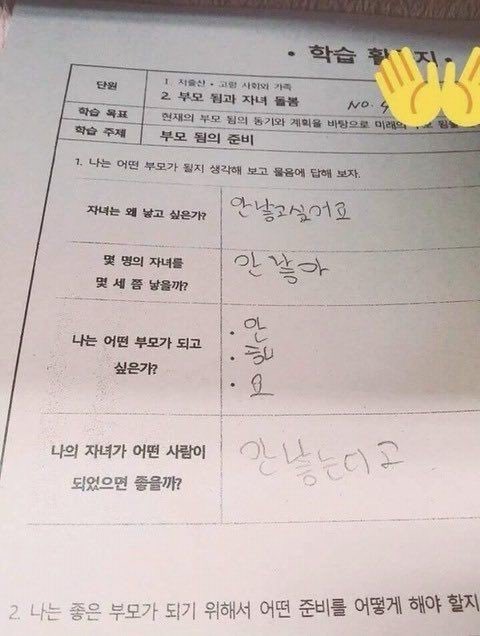 • 학습 활
지 •
단원
1. 저출산 • 고령 사회와 가족
2. 부모 됨과 자녀 돌봄
NO.
학습 목표
현재의 부모 됨의 동기와 계획을 바탕으로 미래의
학습 주제
부모 됨의 준비
1. 나는 어떤 부모가 될지 생각해 보고 물음에 답해 보자.
자녀는 왜 낳고 싶은가?
안낳고싶어요
몇 명의 자녀를
몇 세 쯤 낳을까?
안 낳아
나는 어떤 부모가 되고
싶은가?
• 안
• 해
• 요
나의 자녀가 어떤 사람이
되었으면 좋을까?
안 낳는다고
2. 나는 좋은 부모가 되기 위해서 어떤 준비를 어떻게 해야 할지